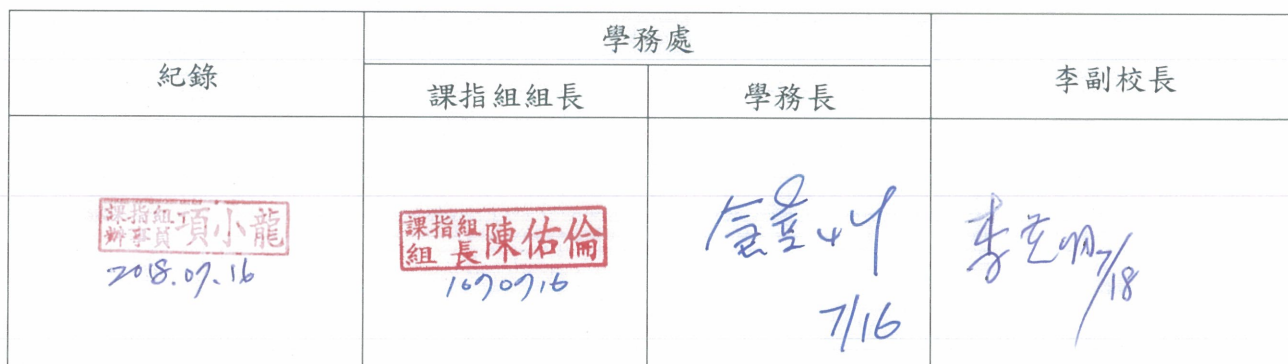 紀錄
學務處
課指組組長
學務長
李副校長
課指組
辦事員
項小龍
2018.07.16
課指組
組長
陳佑倫
1070716
7/16
7/18